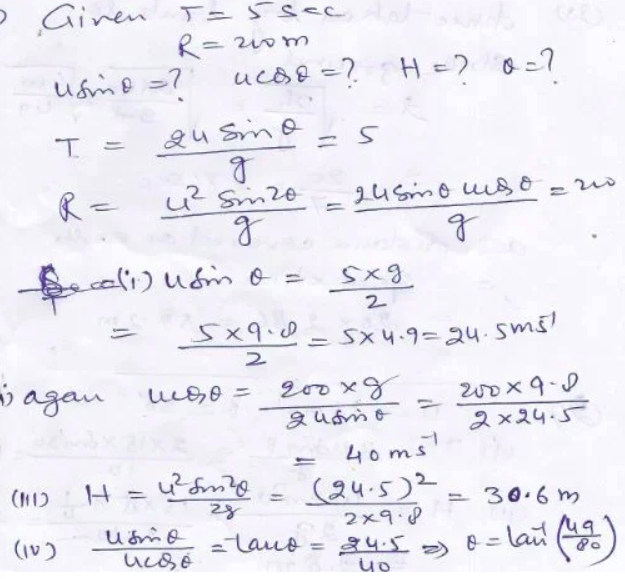 ) Given T = 5 sec
R = 200m
u sinθ = ? u cosθ = ? H = ? θ = ?
T = 2u sinθ / g = 5
R = u² sin2θ / g = 2u sinθ u cosθ / g = 200
(i) u sin θ = 5×g / 2
= 5×9.8 / 2 = 5×4.9 = 24.5 ms⁻¹
) agan u cosθ = 200×g / 2u sinθ = 200×9.8 / 2×24.5
= 40 ms⁻¹
(III) H = u² sin²θ / 2g = (24.5)² / 2×9.8 = 30.6 m
(IV) u sinθ / u cosθ = tanθ = 24.5 / 40 ⇒ θ = tan⁻¹(49/80)